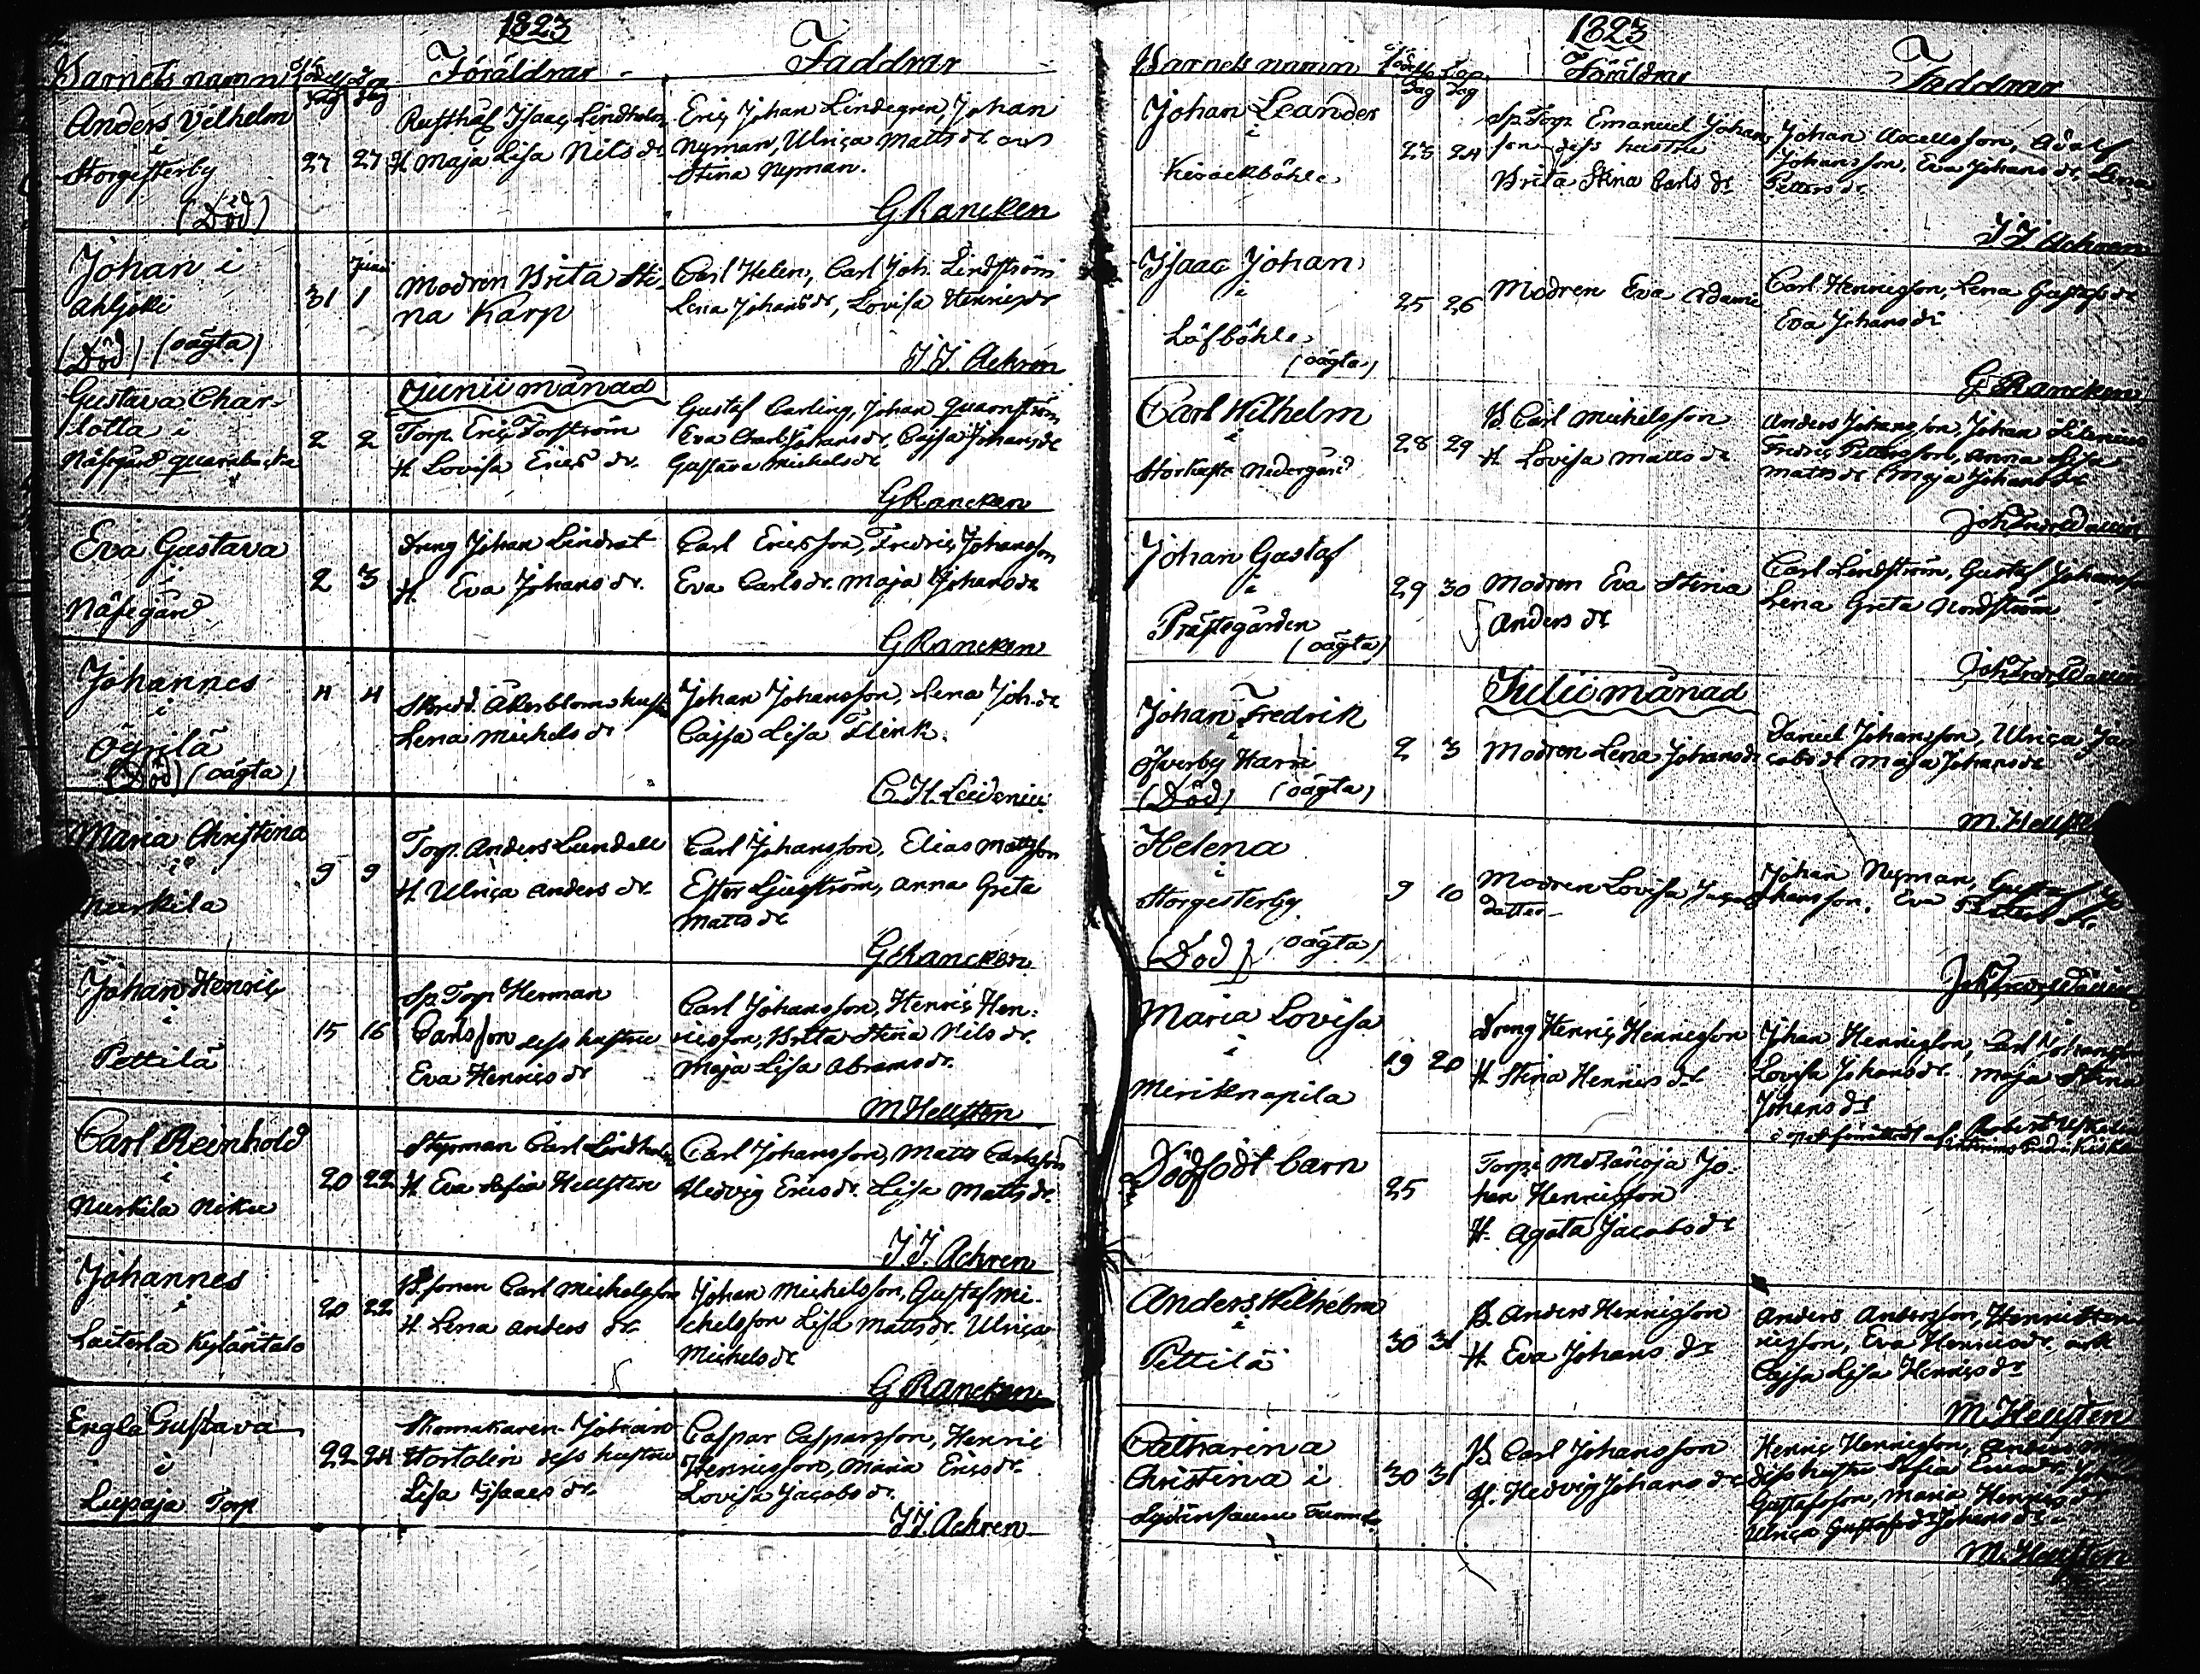 1823
Barnets namn
Födelse dag
Döp dag
Föräldrar
Faddrar
Anders Vilhelm
i
Storgesterby
(Död)
27
27
Rusthål. Isaac Lindholm
H Maja Lisa Nils dr
Eric Johan Lindegren, Johan
Nyman, Ulrica Matts dr och
Stina Nyman.
G Rancken
Johan i
Ahljoki
(Död) (oägta)
31
Junii
1
Modren Brita Sti-
na Karp
Carl Helen, Carl Joh. Lindström
Lena Johansdr, Lovisa Henricsdr
J J. Achrén
Junii månad
Gustava Char-
lotta i
Näsegård
2
2
Torp. Eric Forsström
H Lovisa Erics dr.
Gustaf Carling, Johan Quarnström
Eva Charl. Johansdr, Cajsa Johansdr
Gustava Michelsdr
G Rancken
Eva Gustava
i
Näsegård
2
3
Dreng Johan Lindrot
H. Eva Johans dr.
Carl Ericsson, Fredric Johansson
Eva Carlsdr. Maja Johansdr
G Rancken
Johannes
i
Öyrilä
(Död) (oägta)
4
4
Skredd. Åkerbloms hustru
Lena Michels dr
Johan Johansson, Lena Joh. dr
Cajsa Lisa Flink.
C. H. Leidenius
Maria Christina
i
Murkila
9
9
Torp. Anders Lundell
H. Ulrica Anders dr.
Carl Johansson, Elias Mattsson
Ester Ljungström, Anna Greta
Matts dr
G Rancken
Johan Henric
i
Pettilä
15
16
Sp. Torp Herman
Carlsson dess hustru
Eva Henrics dr
Carl Johansson, Henric Hen-
ricsson, Brita Stina Nils dr.
Maja Lisa Abrams dr.
M Hellsten
Carl Reinhold
i
Murkila Niku
20
22
Styrman Carl Lindholm
H Eva Sofia Hellsten
Carl Johansson, Matts Carlsson
Hedvig Erics dr. Lisa Matts dr.
J J. Achren
Johannes
i
Laiterla Kyläntalo
20
22
B. sonen Carl Michelsson
H. Lena Anders dr.
Johan Michelsson, Gustaf Mi-
chelsson Lisa Matts dr. Ulrica
Michels dr
G Rancken
Engla Gustava
i
Lupaja Torp
22
24
Skomakaren Johan
Hortelin dess hustru
Lisa Isaacs dr.
Caspar Casparsson, Henric
Henricsson, Maria Ericsdr.
Lovisa Jacobs dr.
J J. Achren
1823
Barnets namn
Födelse Dag
Döp. Dag
Föräldrar
Faddrar
Johan Leander
i
Kirackböhle
23
24
Sp. Torp. Emanuel Johans
son dess hustru
Brita Stina Carls dr
Johan Axellsson, Adolf
Johansson, Eva Johans dr. Lena
Petters dr.
J J Achren
Isaac Johan
i
Löfböhle
(oägta)
25
26
Modren Eva Adams
Carl Henricsson, Lena Gustafs dr
Eva Johans dr
G. Rancken
Carl Wilhelm
i
Storhästö Nedergård
28
29
B. Carl Michelsson
H Lovisa Matts dr
Anders Johansson, Johan
Fredric Pettersson, Anna Lisa
Matts dr Maja Johans dr
Joh. Fredr. Wallin
Johan Gustaf
i
Prästegården
(oägta)
29
30
Modren Eva Stina
Anders dr
Carl Lindström, Gustaf Johansson
Lena Greta Nordström
Joh. Fredr. Wallin
Julii månad
Johan Fredrik
i
Öfverby Harri
(Död) (oägta)
2
3
Modren Lena Johansdr
Daniel Johansson, Ulrica Ja-
cobs dr Maja Johansdr
M. Hellsten
Helena
i
Storgesterby
(Död) (oägta)
9
10
Modren Lovisa
dotter
Johan Nyman, Gustaf Jo-
hansson. Eva Petters dr.
Joh. Fredr. Wallin
Maria Lovisa
i
Meriknapila
19
20
Dreng Henric Henricsson
H Stina Henrics dr
Johan Henricsson, Carl Johansson
Lovisa Johansdr. Maja Stina
Johans dr
Dödfödt barn
25
Torp. i Johan Henricsson
H. Agata Jacobs dr
Anders Wilhelm
i
Pettilä
30
31
B. Anders Henricsson
H Eva Johans dr
Anders Andersson, Henric Hen-
ricsson, Eva Henricsdr. och
Cajsa Lisa Henrics dr
M. Hellsten
Catharina
Christina i
30
31
B Carl Johansson
H. Hedvig Johans dr
Henric Henricsson,
dess hustru Sofia Ericsdr. Johan
Gustafsson, Maria Henrics dr
Ulrica
M. Hellsten